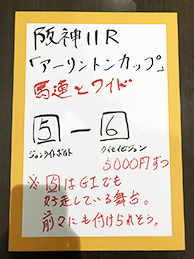 阪神11R
「アーリントンカップ」
馬連とワイド
5 — 6
ジョンライトボルト クイセイビジョン
5000円ずつ
※5はGIでも
好走している舞台。
前々にも付けられそう。